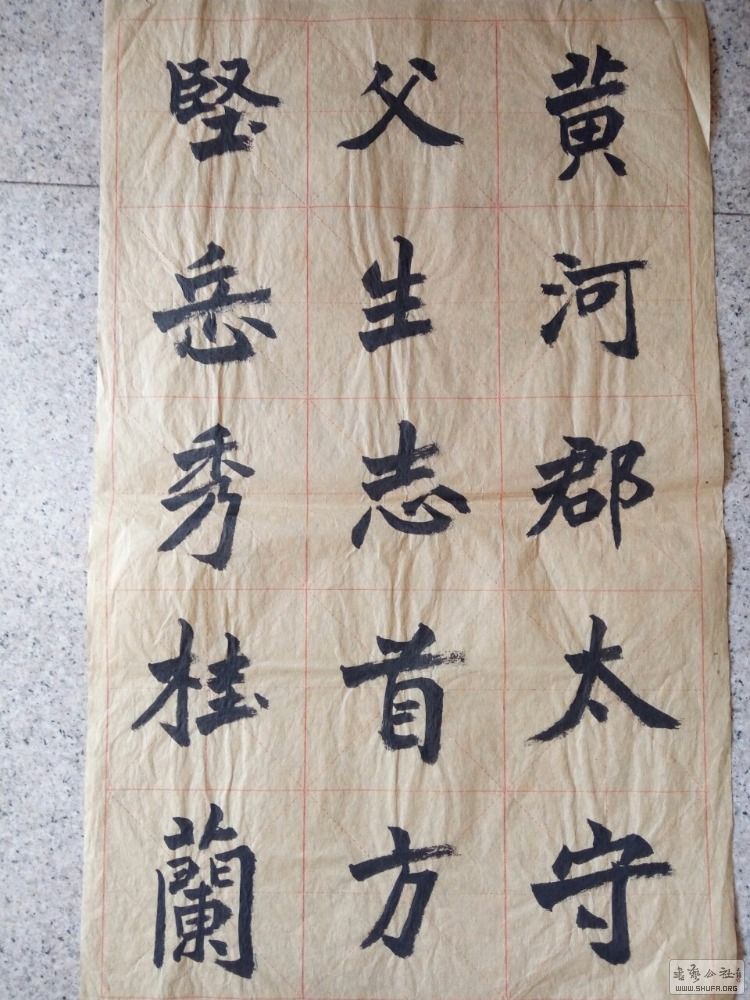 黄河郡太守
父生志首方
堅岳秀桂蘭
WWW.SHUFA.ORG